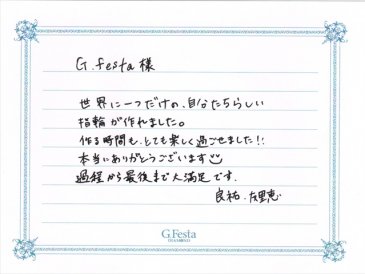 G.festa 様
世界に一つだけの、自分たちらしい
指輪が作れました。
作る時間も、とても楽しく過ごせました!!
本当にありがとうございます
過程から最後まで大満足です.
良祐.友里恵
G.Festa
DIAMOND